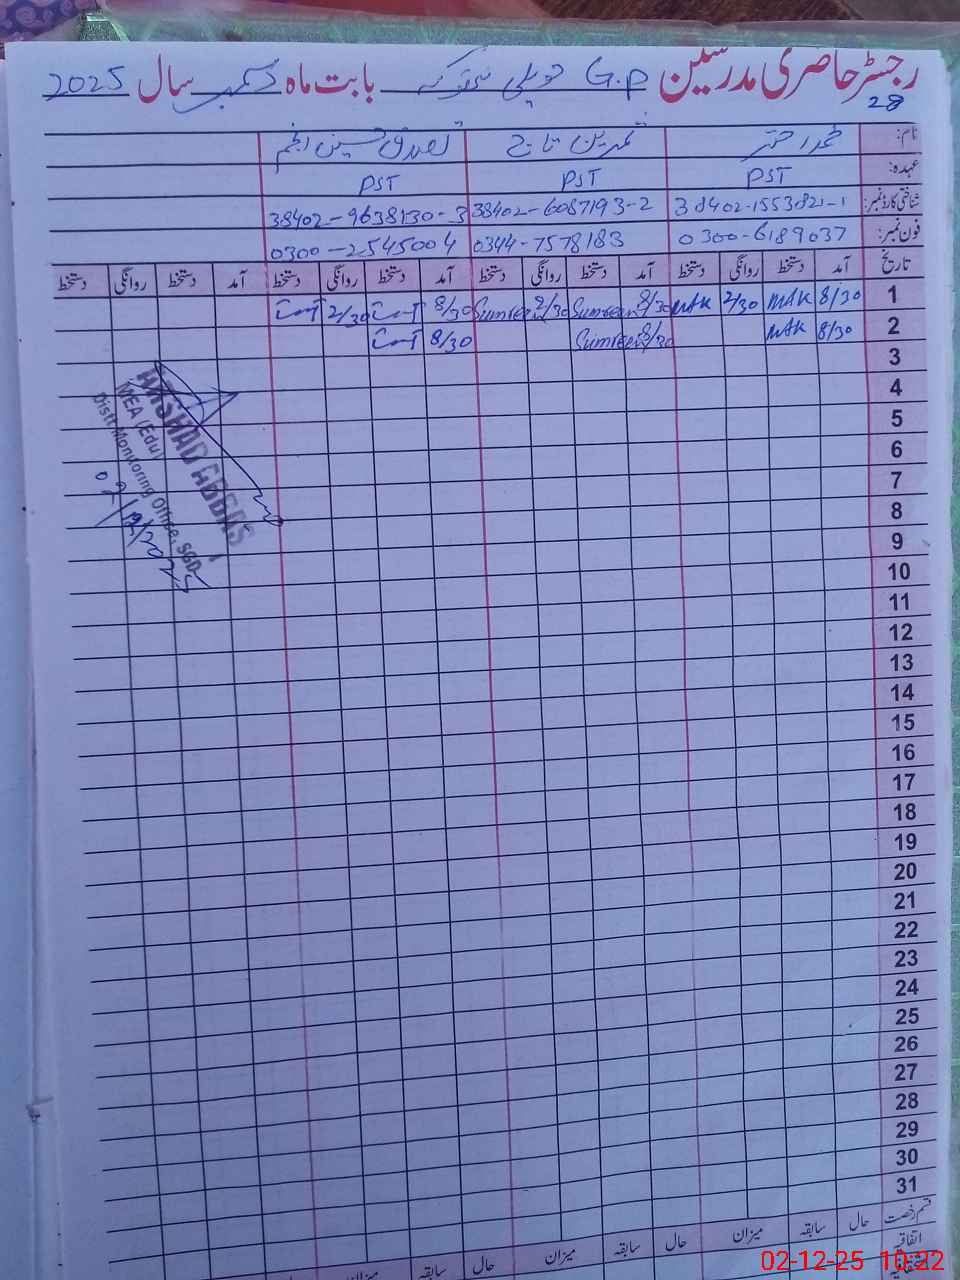 رجسٹر حاضری مدرسین G.P حویلی بابت ماہ دسمبر سال 2025
28
نام: محمد اختر ثمرین تاج تصدق حسین انجم
عہدہ: PST PST PST
شناختی کارڈ نمبر: 38402-1553821-1 38402-6087193-2 38402-9638130-3
فون نمبر: 0300-6189037 0344-7578183 0300-2545004
تاریخ آمد دستخط روانگی دستخط آمد دستخط روانگی دستخط آمد دستخط روانگی دستخط آمد دستخط روانگی دستخط
1 8/30 MAK 2/30 MAK 8/30 Sumreen 2/30 Sumreen 8/30 2/30
2 8/30 MAK 8/30 Sumreen 8/30
3
4
5
6
7
8
9
10
11
12
13
14
15
16
17
18
19
20
21
22
23
24
25
26
27
28
29
30
31
ARSHAD ABBAS
MEA (Edu)
Distt Monitoring Office, SGD
02/12/2025
قسم رخصت حال سابقہ میزان حال سابقہ میزان حال سابقہ میزان
اتفاقیہ
02-12-25 10:22